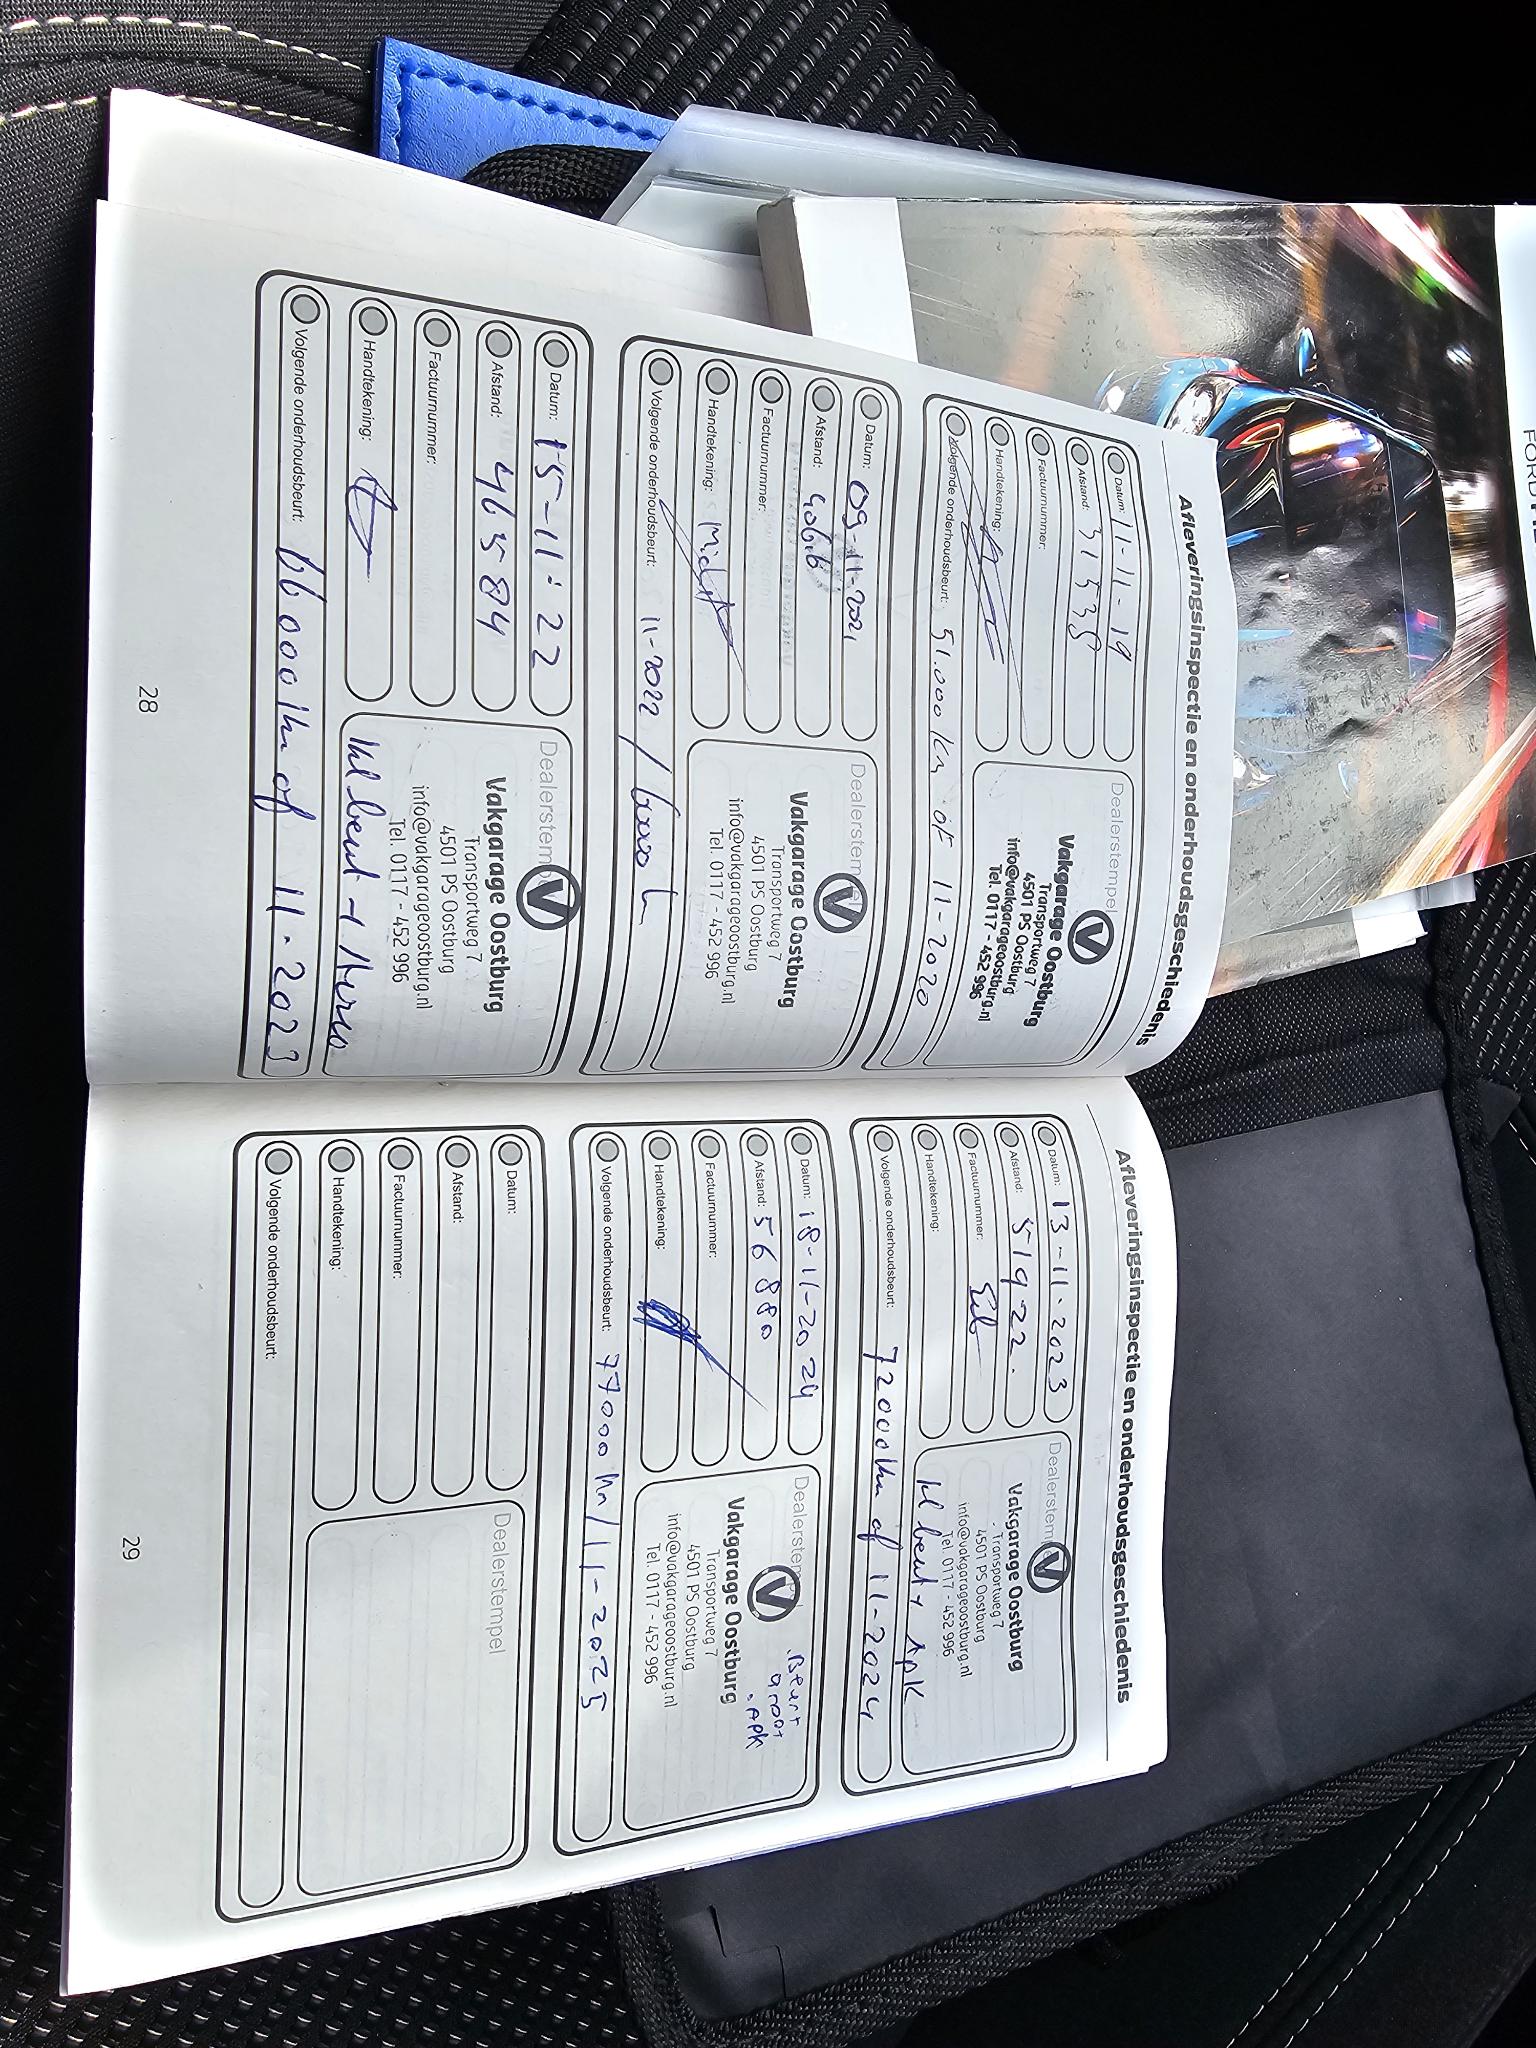 Afleveringsinspectie en onderhoudsgeschiedenis
Datum: 11-11-19
Afstand: 31535
Factuurnummer:
Handtekening:
Volgende onderhoudsbeurt: 51.000 km of 11-2020
Dealerstempel
Vakgarage Oostburg
Transportweg 7
4501 PS Oostburg
info@vakgarageoostburg.nl
Tel. 0117 - 452 996
Datum: 09-11-2021
Afstand:
Factuurnummer:
Handtekening:
Volgende onderhoudsbeurt: 11-2022 /
Dealerstempel
Vakgarage Oostburg
Transportweg 7
4501 PS Oostburg
info@vakgarageoostburg.nl
Tel. 0117 - 452 996
Datum: 15-11-22
Afstand: 46584
Factuurnummer:
Handtekening:
Volgende onderhoudsbeurt: 66000km of 11-2023
Dealerstempel
Vakgarage Oostburg
Transportweg 7
4501 PS Oostburg
info@vakgarageoostburg.nl
Tel. 0117 - 452 996
kl beurt +
28
Afleveringsinspectie en onderhoudsgeschiedenis
Datum: 13-11-2023
Afstand: 51922.
Factuurnummer:
Handtekening:
Volgende onderhoudsbeurt: 72000km of 11-2024
Dealerstempel
Vakgarage Oostburg
Transportweg 7
4501 PS Oostburg
info@vakgarageoostburg.nl
Tel. 0117 - 452 996
kl beurt + APK
Datum: 18-11-2024
Afstand: 56880
Factuurnummer:
Handtekening:
Volgende onderhoudsbeurt: 77000km / 11-2025
Dealerstempel
Vakgarage Oostburg
Transportweg 7
4501 PS Oostburg
info@vakgarageoostburg.nl
Tel. 0117 - 452 996
.Beurt
groot
.APK
Datum:
Afstand:
Factuurnummer:
Handtekening:
Volgende onderhoudsbeurt:
Dealerstempel
29